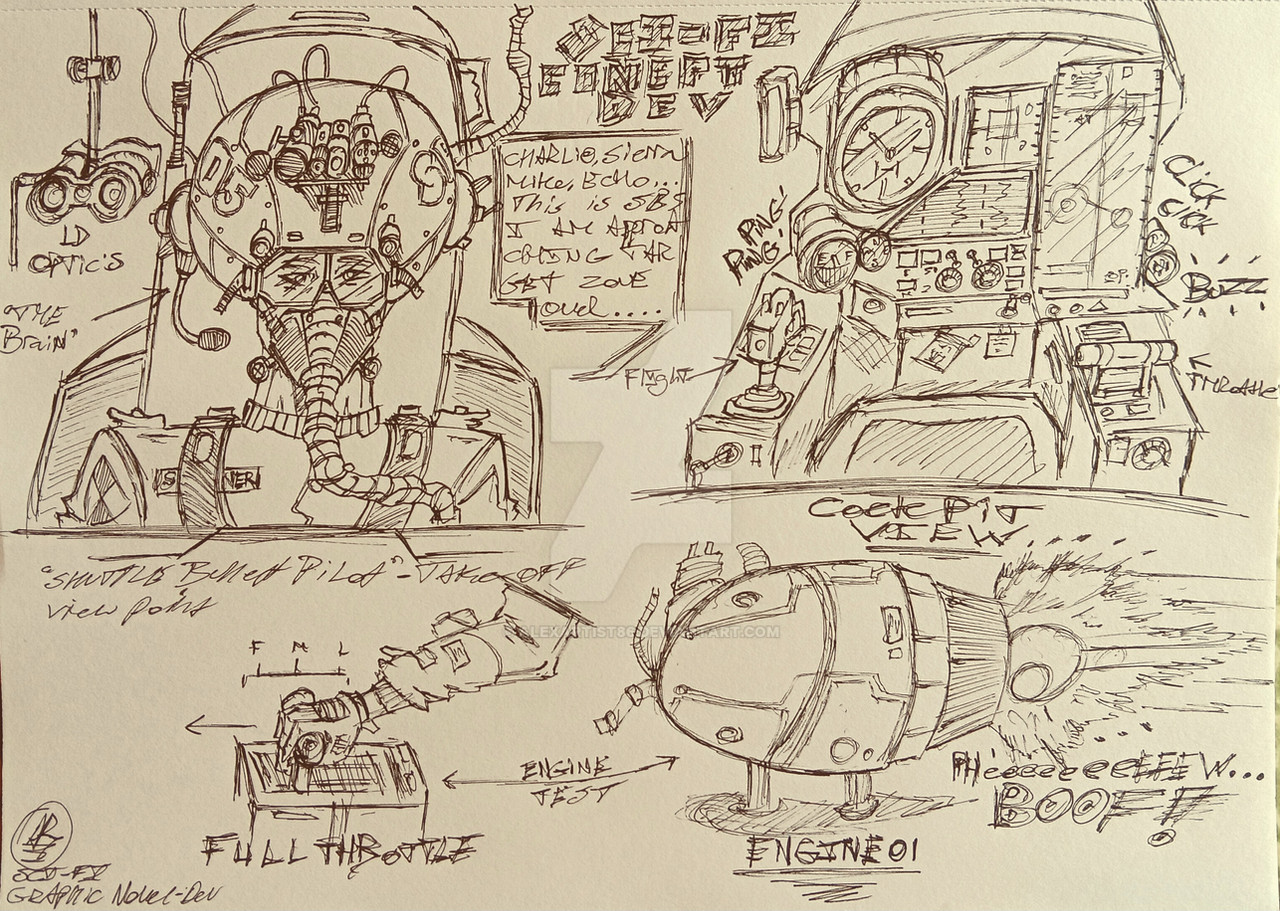 SI-FI
CONEPT
DEV
CHARLIE, Sierra
Mike, Echo...
This is SBS
I AM APPROA
CHING TAR
GET ZONE
OVER....
LD
OPTIC'S
"THE
Brain"
PING!
PING!
CLICK
CLICK
BUZZ
Flight
THROTTLE
COCKPIT
VIEW...
"SHUTTLE Bullet PILOT" - TAKE OFF
VIEW POINT
F M L
ENGINE
TEST
FULL THROTTLE
PHeeeeeeeEEEW...
BOOF!!
ENGINE 01
SCI-FI
GRAPHIC Novel-Dev
ALEXARTIST86.DEVIANTART.COM